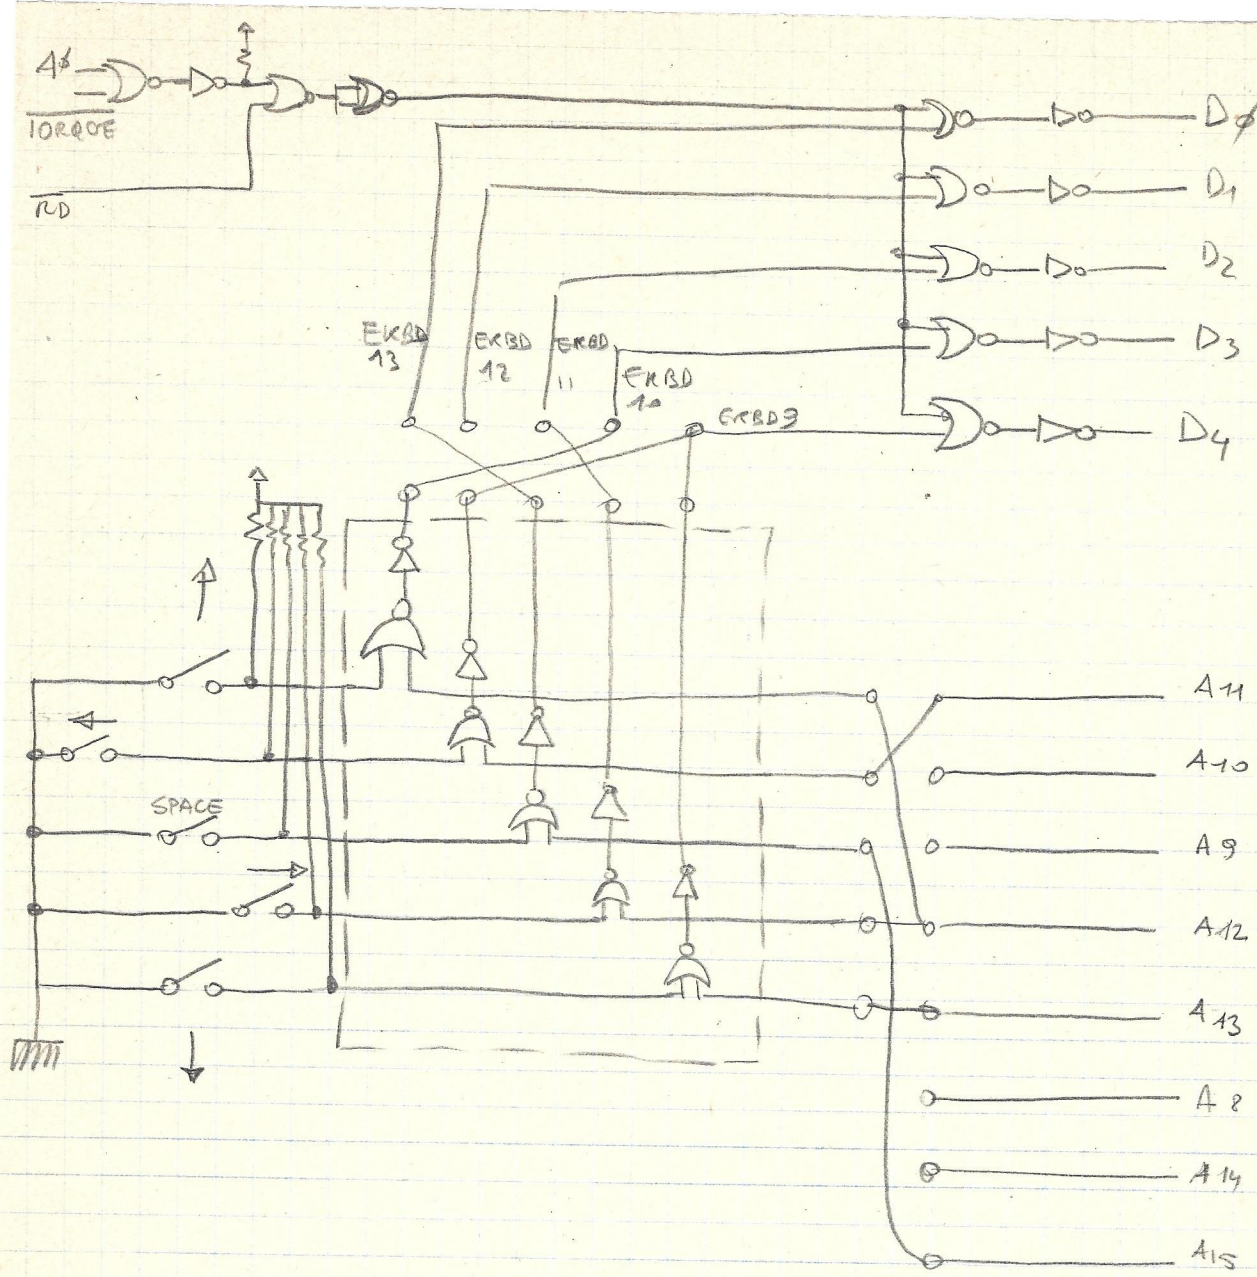 Aϕ
IORQGE
RD
Dϕ
D1
D2
D3
D4
EKBD
13
EKBD
12
EKBD
11
EKBD
10
EKBD9
SPACE
A11
A10
A9
A12
A13
A8
A14
A15